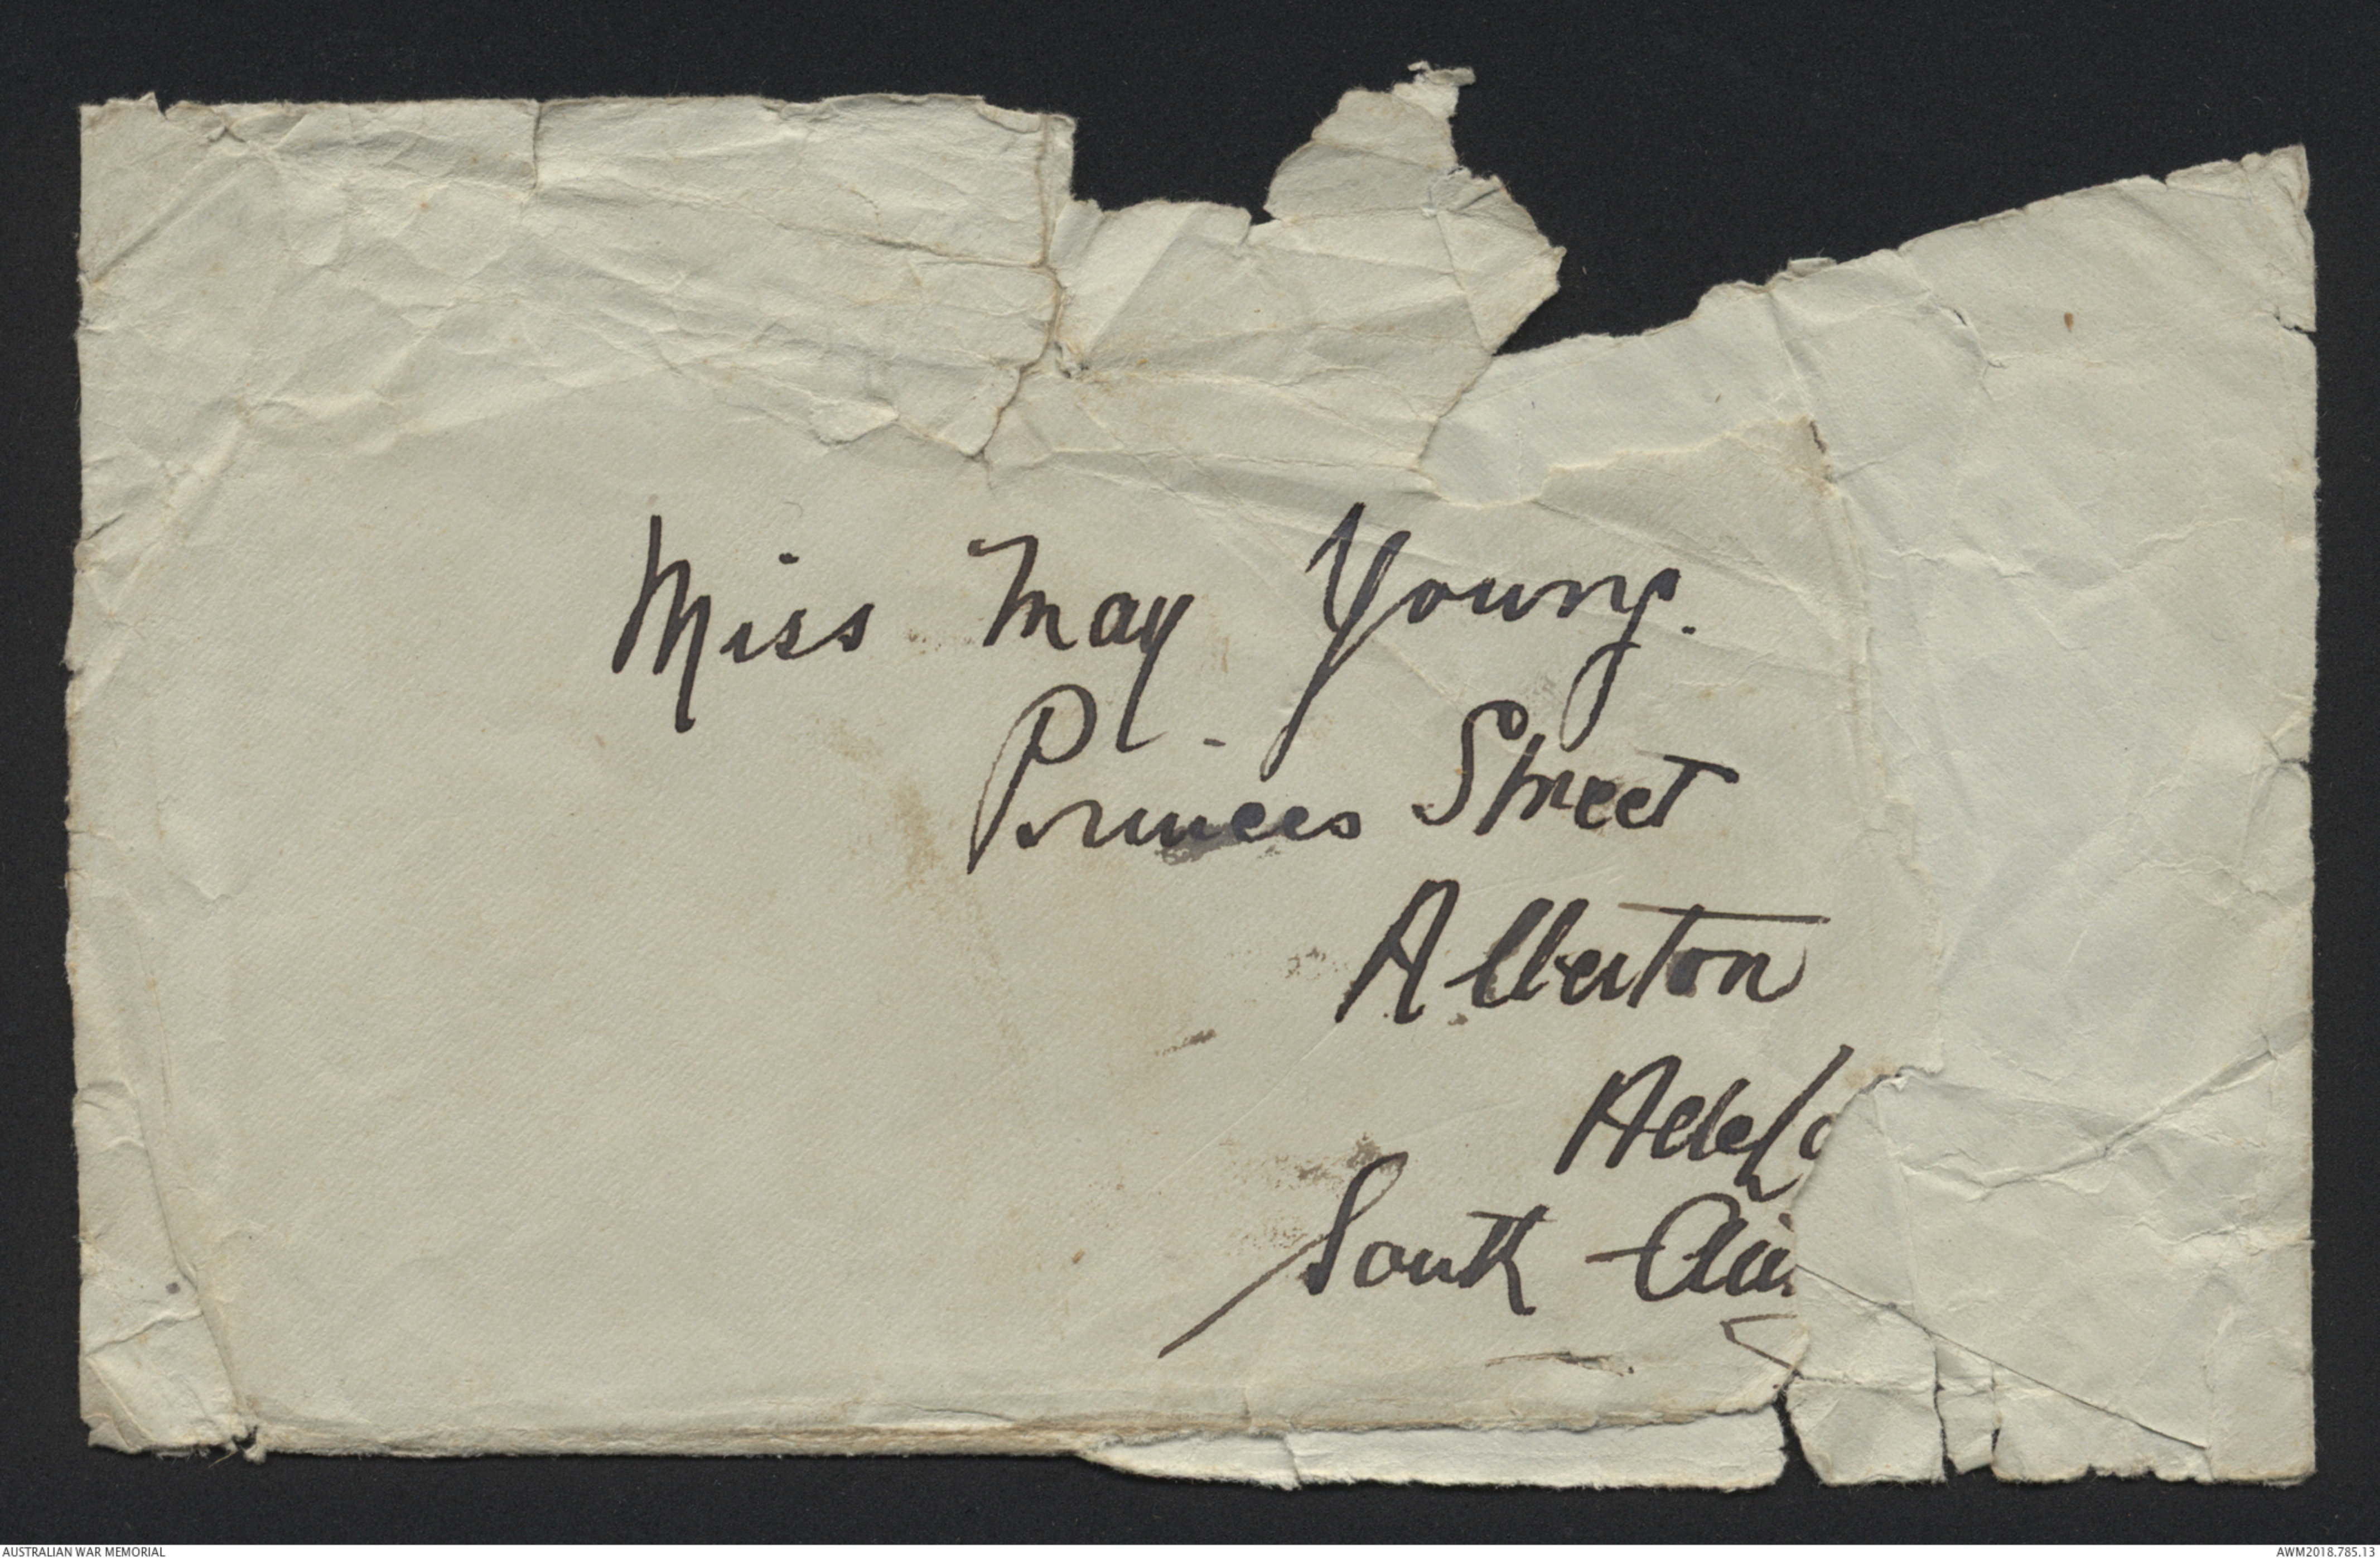 Miss May Young.
Princes Street
Alberton
Adela
South Aus
AUSTRALIAN WAR MEMORIAL
AWM2018.785.13